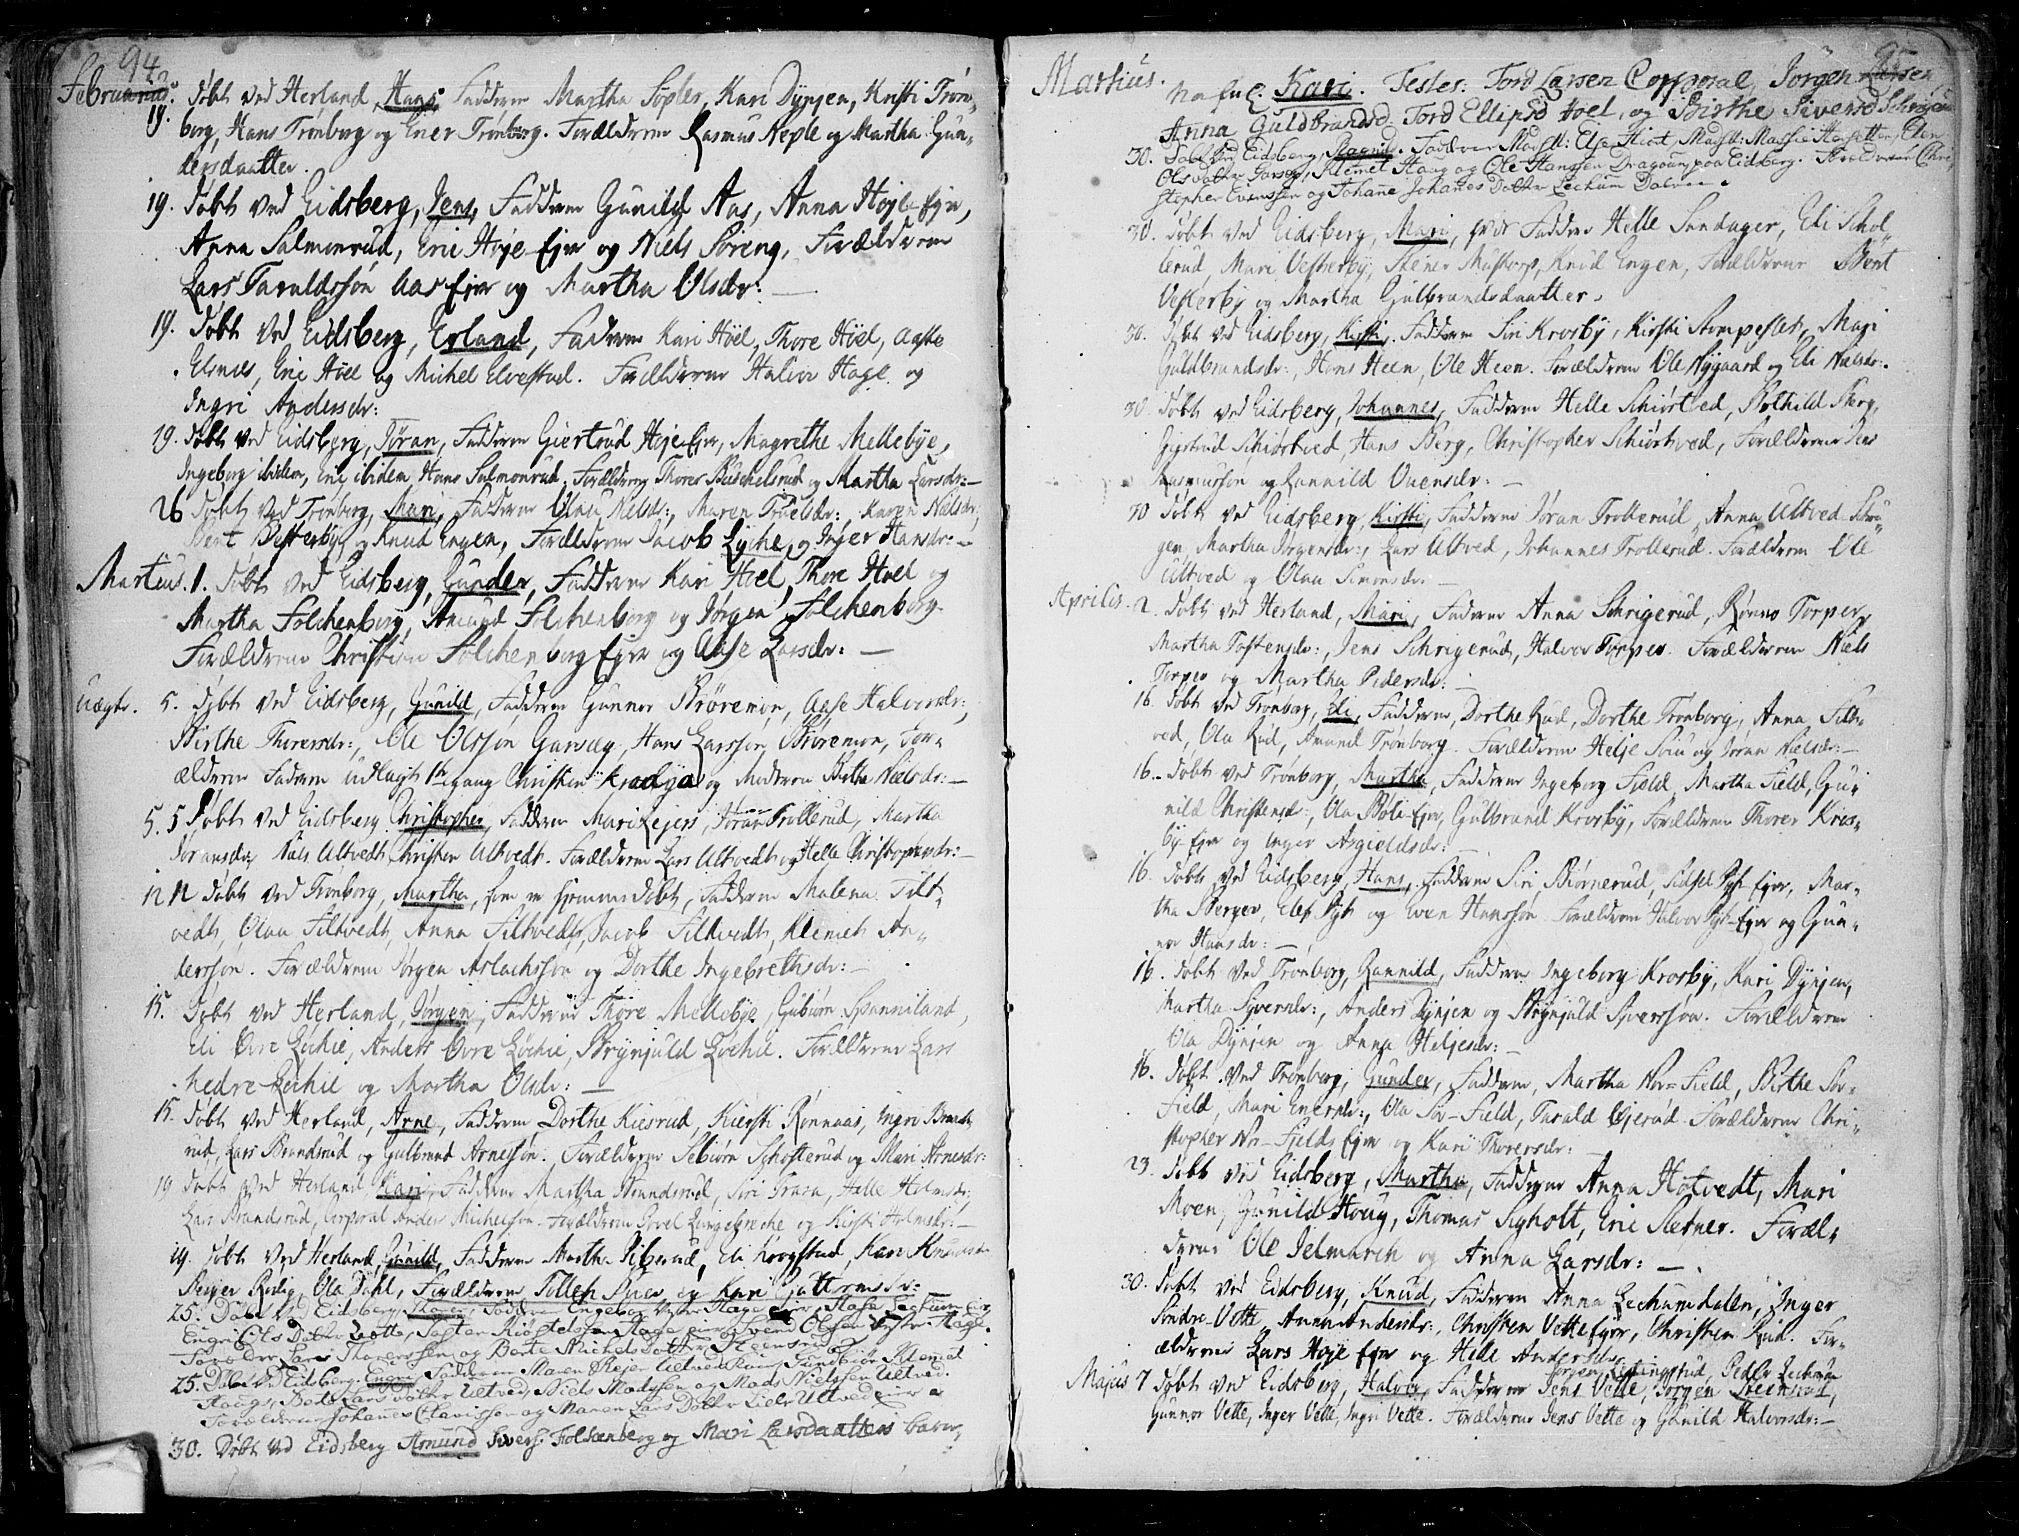 94
Februarius.
19. Døbt ved Herland, Hans, Faddere Martha Sopler, Kari Dynjen, Kirsti Trøn-
borg, Hans Trønborg og Ener Trønborg. Forældrene Rasmus Neple og Martha Gun-
dersdaatter.
19. Døbt ved Eidsberg, Jens, Faddere Gunild Aas, Anna Høje Ejer,
Anna Salmonrud, Eric Høje Ejer og Niels Soreng, Forældrene
Lars Taraldssøn Aas Ejer og Martha Olsdr: —
19. Døbt ved Eidsberg, Erland, Faddere Kari Høel, Thore Høel, Aase
Elsnes, Eric Høel og Michel Elvestad. Forældrene Halvor Hage og
Ingri Andersdr:
19. Døbt ved Eidsberg, Jøran, Faddere Giertrud Høje Ejer, Magrethe Mellebye,
Ingeborg ibidem, Eric ibidem, Hans Salmonrud, Forældrene Thorer Buschelsrud og Martha Larsdr: —
26 Døbt ved Trønborg, Mari, Faddere Olau Nelsdr:, Maren Truelsdr:, Karen Nielsdr:,
Bent Vesterby og Knud Engen, Forældrene Jacob Lyche og Inger Hansdr: —
Martius. 1. Døbt ved Eidsberg, Gunder, Faddere Kari Høel, Thore Høel og
Martha Folchenborg, Amund Folchenborg og Jørgen Folchenborg.
Forældrene Christian Folchenborg Ejer og Aase Larsdr: —
Uægte. 5. Døbt ved Eidsberg, Gunild, Faddere Gunnor Brøremon, Aase Halvorsdr:,
Birthe Thoresdr:, Ole Olssøn Garsæg, Hans Larssøn Brøremon, For-
ældrene Faderen udlagt 1te gang Christen Krosbye og Moderen Berthe Nielsdr: —
5. 5 Døbt ved Eidsberg Christopher, Faddere Mari Lejers, Jøran Trollerud, Martha
Joransdr, Niels Ultvedt, Christen Ultvedt. Forældrene Lars Ultvedt og Helle Christophersdr: —
12 12 Døbt ved Trønborg, Martha, som er hjemmedøbt, Faddere Malena Filt-
vedt, Olau Filtvedt, Anna Filtvedt, Jacob Filtvedt, Klemet An-
derssøn. Forældrene Jørgen Aslachssøn og Dorthe Ingebrethsdr: —
15. Døbt ved Herland, Jørgen, Faddere Thore Mellebye, Gubiørn Spanniland,
Eli Øvre Løchie, Anders Øvre Løchie, Brynjuld Løchie. Forældrene Lars
Nedre Løchie og Martha Olsdr: —
15. Døbt ved Herland, Arne, Faddere Dorthe Kiesrud, Kiersti Rønnaas, Ingri Brands-
rud, Lars Brandsrud og Gulbrand Arnessøn. Forældrene Sebiørn Schofterud og Mari Arnesdr:
19 Døbt ved Herland Kari, Faddere Martha Brandsrud, Siri Grava, Helle Holmsdr,
Lars Brandsrud, Corporal Anders Michelssøn. Forældrene Povel Lengebreche og Kirsti Holmsdr: —
19. Døbt ved Herland, Gunild, Faddere Martha Riiserud, Eli Kroogstad, Kari Knudsdr
Reijer Rodig, Ola Dahl, Forældrene Tollef Buer og Kari Guttormsdr:
25. Døbt ved Eidsberg, Thore, Faddere Engebor Vestre Hage Ejer, Aase Lechum Ejer
Engri Ols Datter Lotte, Hage Ejer og Svend Olssen Vestre Hage.
Forældre Lars Thorerssen og Berte Michels Datter Steensrud
25. Døbt ved Eidsberg, Engri, Faddere Maren Rejer Ultved, Kari Gundbiør Klemet
Haugs, Berte Lars Datter Ultved, Niels Madssen og Mads Nielssen Ultved.
Forældrene Johanes Olavissen og Maren Lars Datter Ultved Ejer
30. Døbt ved Eidsberg Amund Sivers. Folkenborg og Mari Larsdaatters barn,
95
Martius. Nafnl. Kari. Testes. Tord Larsen Corporal, Jørgen Larsen,
Anna Guldbrandsd. Tord Ellipsd Hoel, og Birthe Siversd
30. Døbt ved Eidsberg, Faddere Mad: Else Hiort, Mads: Massie Harsetter, Elen
Olsdatter, Klemet Haug og Ole Hanssen Dragoun paa Eidberg. Forældrene Chri-
stopher Evenssen og Johane Johanes Datter Lechum Dalen.
30. Døbt ved Eidsberg, Mari, hvor Faddere Helle Sandager, Eli Schol-
lerud, Mari Vesterby, Stener Mustorp, Knud Engen, Forældrene Bent
Vesterby og Martha Gulbrandsdaatter.
30. Døbt ved Eidsberg, Kirsti, Faddere Siri Krosby, Kirsti Stompeslet, Mari
Guldbrandsdr:, Hans Heen, Ole Heen. Forældrene Ole Nygaard og Eli Nielsdr:.
30. Døbt ved Eidsberg, Johannes, Faddere Helle Schiørtved, Bothild Berg,
Giertrud Schiørtved, Hans Berg, Christopher Schiørtved, Forældrene Jens
Rasmussøn og Rannild Ovensdr: —
30 Døbt ved Eidsberg, Kirsti, Faddere Jøran Trollerud, Anna Ultved
gen, Martha Jørgensdr:, Lars Ultved, Johannes Trollerud. Forældrene Ole
Ultved og Olau Simonsdr: —
Aprilis. 2. Døbt ved Herland, Mari, Faddere Anna Schrigerud, Rønno Torper,
Martha Tostensdr:, Jens Schrigerud, Halvor Torper. Forældrene Niels
Torper og Martha Pedersdr: —
16. Døbt ved Trønborg, Eli, Faddere, Dorthe Rud, Dorthe Trønborg, Anna Filt-
ved, Ola Rud, Amund Trønborg. Forældrene Helje Soiu og Jøran Nielsdr: —
16. Døbt ved Trønborg, Martha, Faddere Ingeborg Field, Martha Field, Gu-
nild Christensd:, Ola Bøle Ejer, Gulbrand Krosby, Forældrene Thorer Kros-
by Ejer og Inger Asgieldsdr: —
16. Døbt ved Eidsberg, Hans, Faddere Siri Biørnerud, Sidsel Ejer, Mar-
tha Berger, Elef og Even Hanssøn. Forældrene Halvor Ejer og Gun-
nor Hansdr: —
16. Døbt ved Trønborg, Rannild, Faddere Ingeborg Krosby, Kari Dynjen,
Martha Syversdr:, Anders Dynjen og Brynjuld Syverssøn. Forældrene
Ola Dynjen og Anna Heljesdr: —
16. Døbt ved Trønborg, Gunder, Faddere, Martha Nor-Field, Birthe Sor-
Field, Mari Enersdr:, Ola Sor-Field, Tarald Gjerud. Forældrene Chri-
stopher Nor-Fields Ejer og Kari Thoversdr: —
23. Døbt ved Eidsberg, Martha, Faddere Anna Høtvedt, Mari
Moen, Gunild Houg, Thomas Sigholt, Eric Sletner. Foræl-
drene Ole Jelmarch og Anna Larsdr: —
30. Døbt ved Eidsberg, Knud, Faddere Anna Lechumdalen, Inger
Søndre Vette, Anna Andersdr:, Christen Vette Ejer, Christen Rud. For-
ældrene Lars Høje Ejer og Helle Andersdr:
Majus 7 Døbt ved Eidsberg, Halvor, Faddere Jens Vette, Jørgen Steensrud, Peder Lechum
Gunnor Vette, Inger Vette, Ingri Vette. Forældrene Jens Vette og Gunild Halvorsdr: —